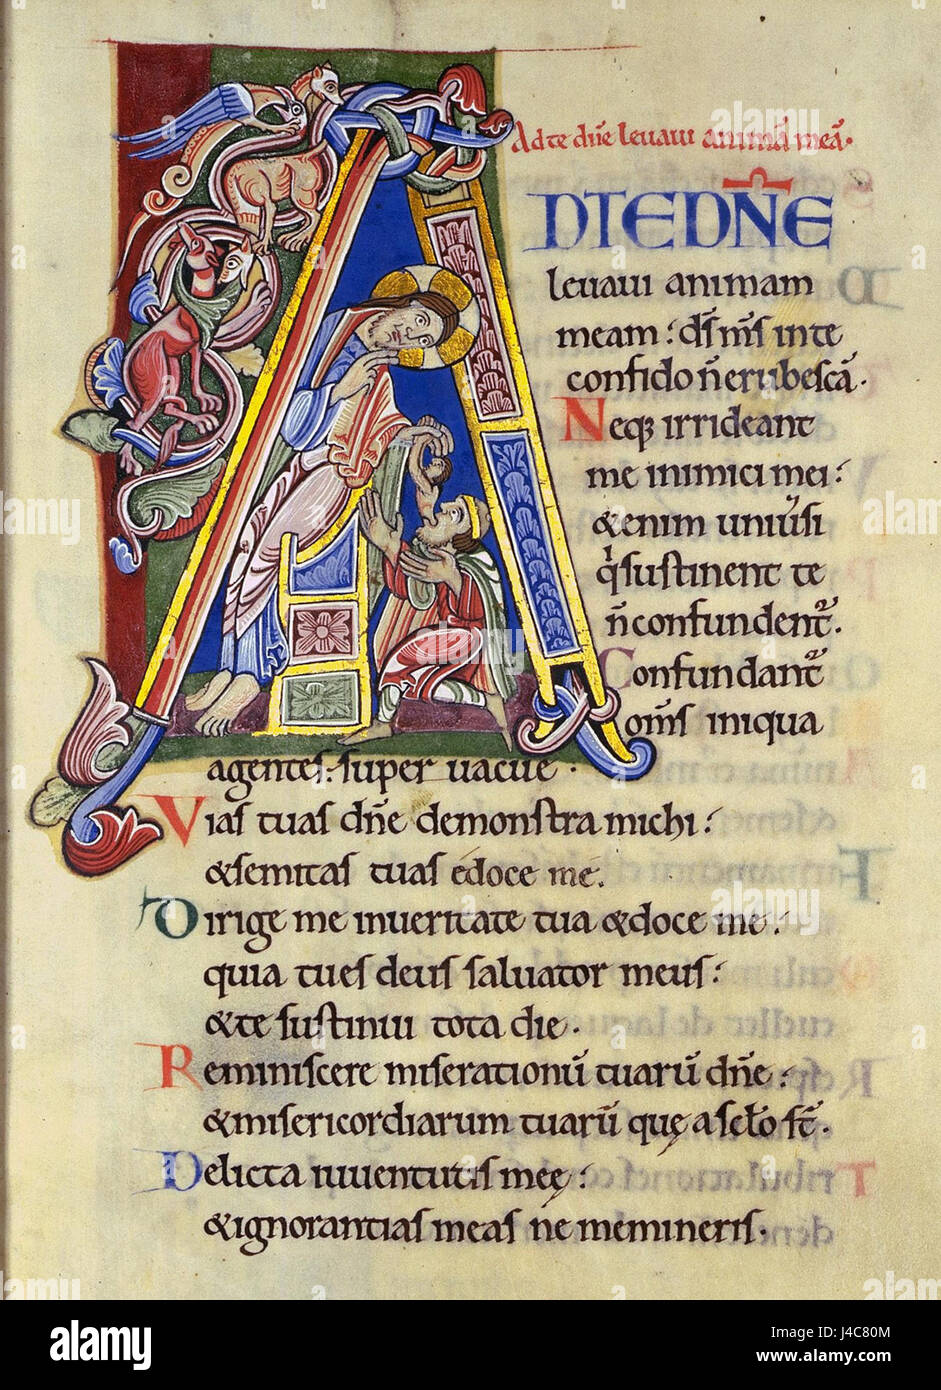 Ad te dn̄e levavi animā meā.
AD TE DN̄E
levavi animam
meam: d̄s m̄s in te
confido n̄ erubescā.
Neq; irrideant
me inimici mei:
& enim univ̉si
q̉ sustinent te
n̄ confundent᷑.
Confundant᷑
om̄s iniqua
agentes: super vacue.
Vias tuas dn̄e demonstra michi:
& semitas tuas edoce me.
Dirige me in veritate tua & doce me:
quia tu es deus salvator meus:
& te sustinui tota die.
Reminiscere miserationū tuarū dn̄e:
& misericordiarum tuarū quę a sclo st̄.
Delicta iuventutis meę:
& ignorantias meas ne memineris.
alamy
Image ID: J4C80M
www.alamy.com